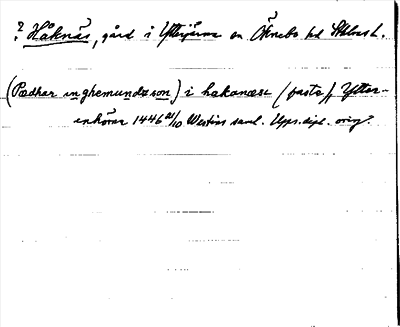 ? Håknäs, gård i Ytterjärna sn Öknebo hd Sthlms l.
(Pædher inghemundæson) i hakanæse (fasta) Ytter-
enhörna 1446 21/10 Westins saml. Upps. dipl. orig?